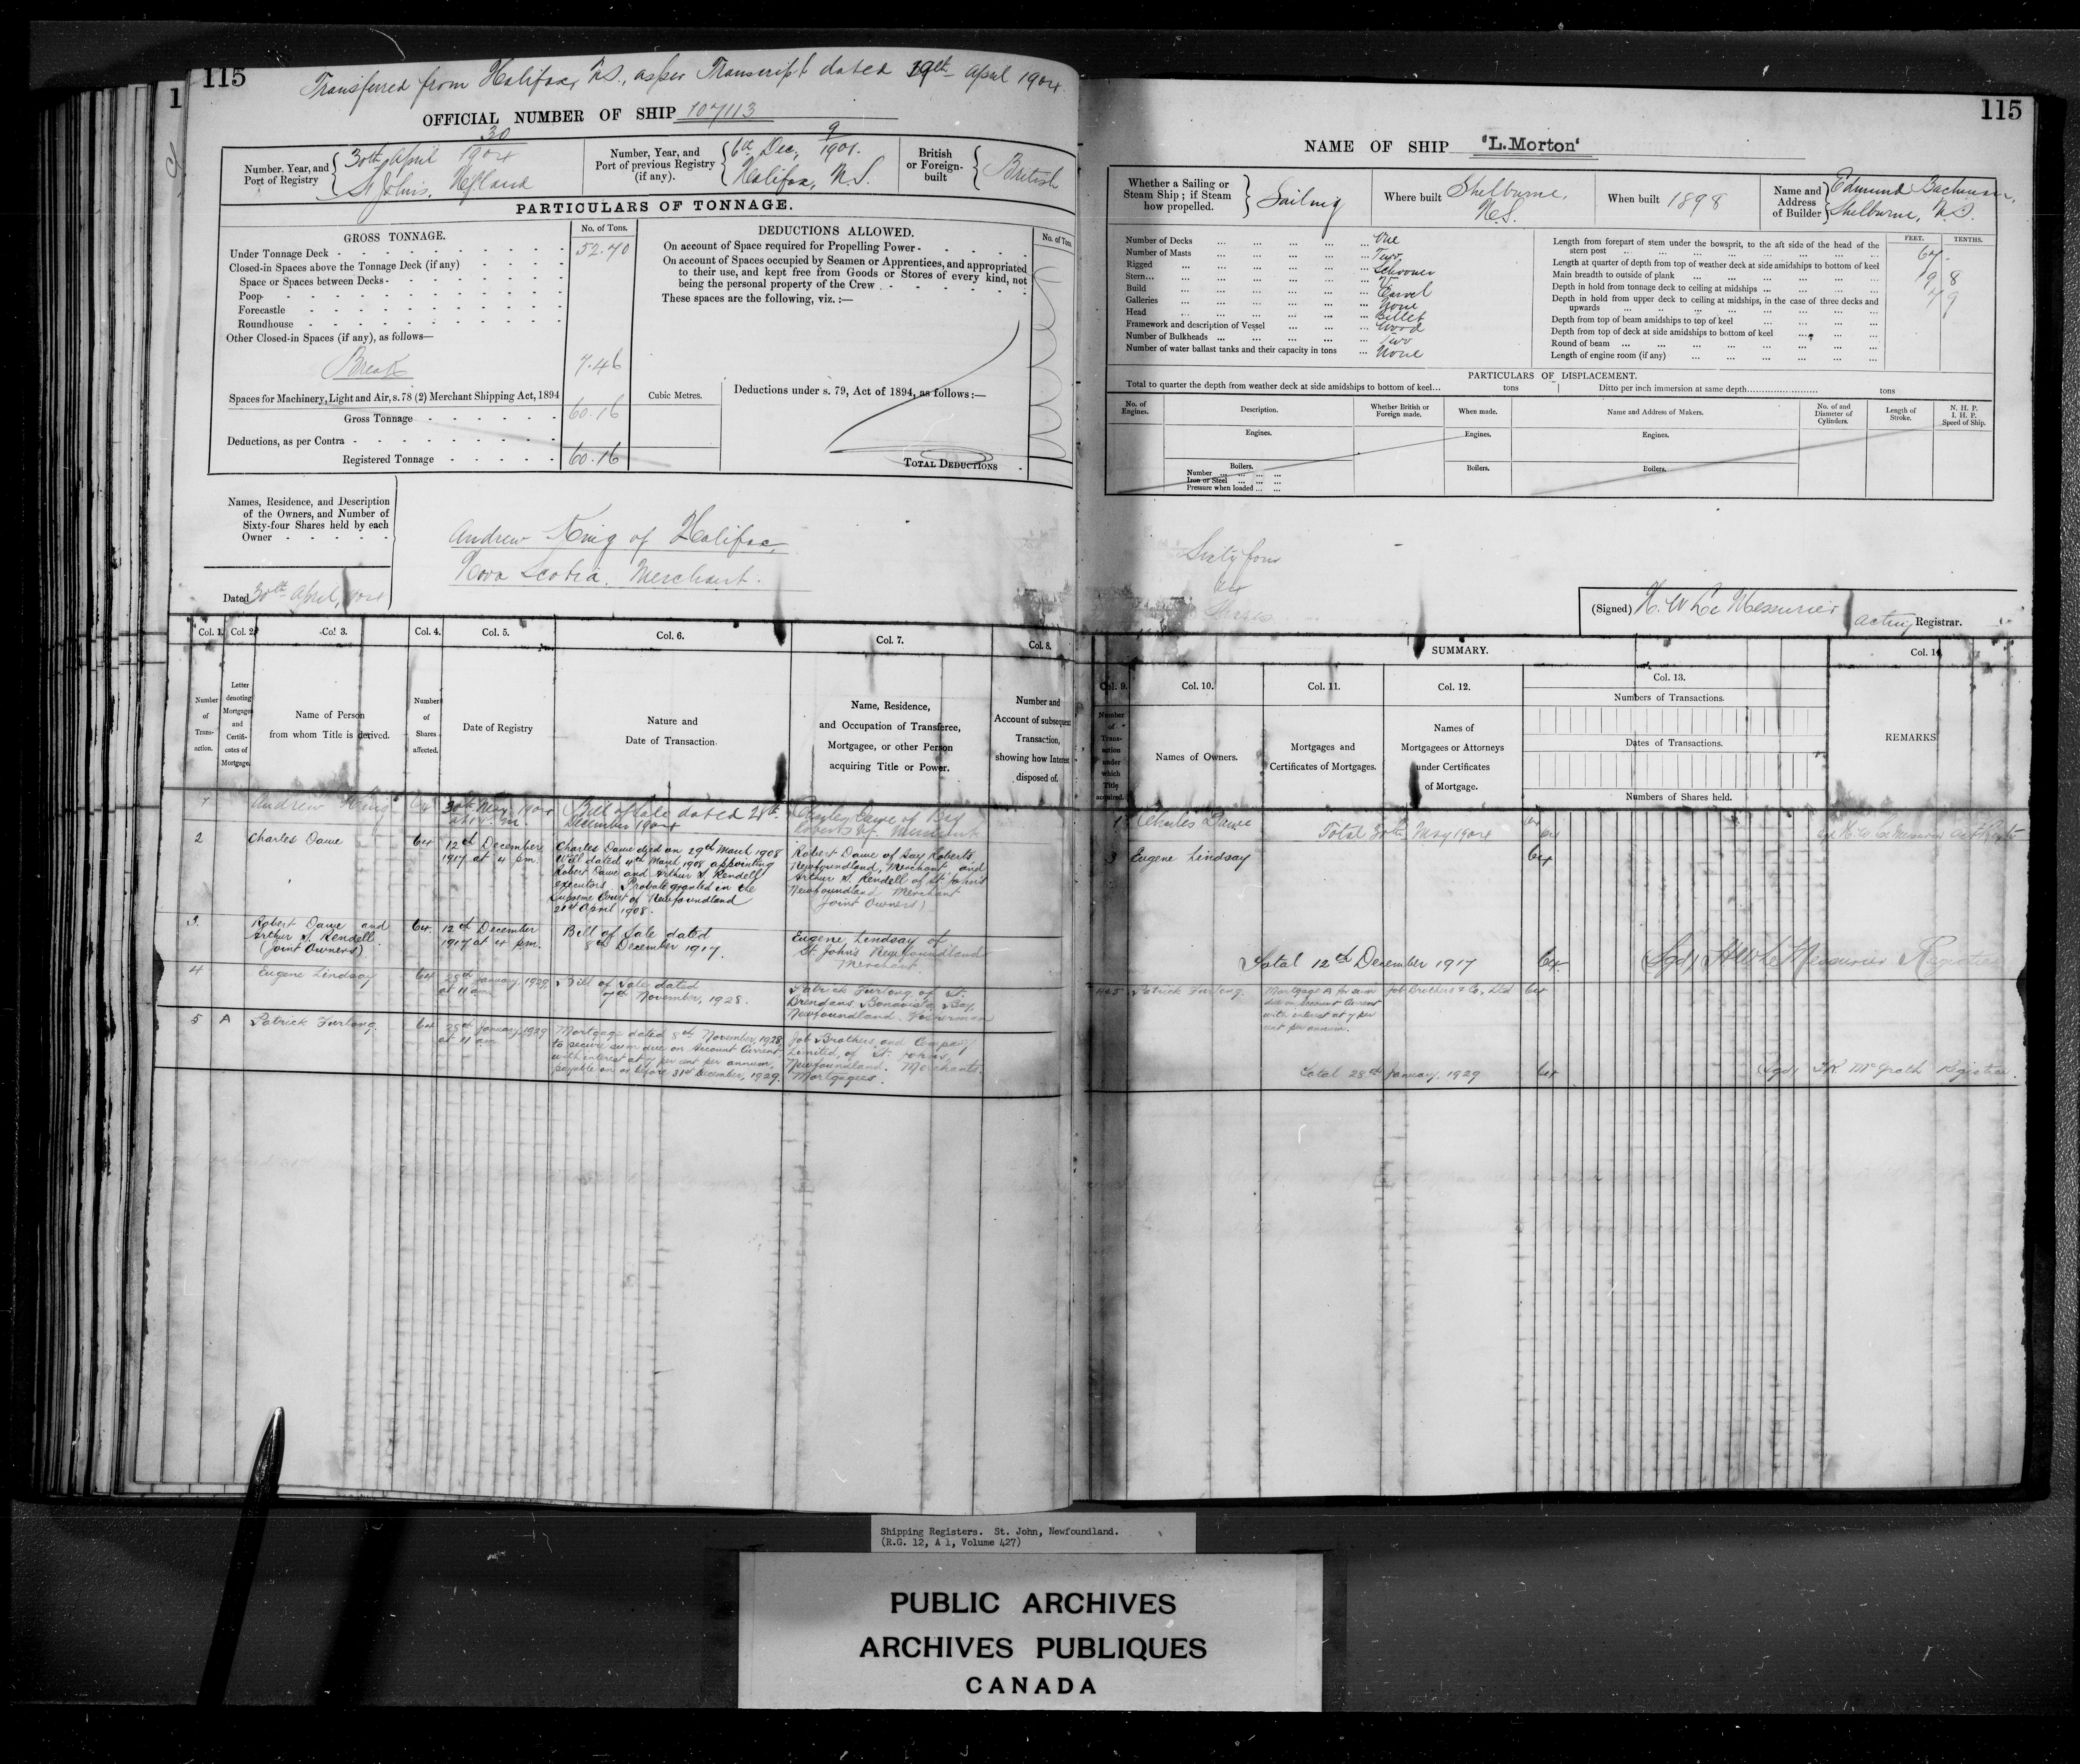 115
Transferred from Halifax, N.S., as per Transcript dated 19th April 1904
OFFICIAL NUMBER OF SHIP 107113
Number, Year, and Port of Registry
30
30th April 1904
St John's, Nfland
Number, Year, and Port of previous Registry (if any).
9
6th Dec, 1901.
Halifax, N.S.
British or Foreign-built
British
PARTICULARS OF TONNAGE.
GROSS TONNAGE.
No. of Tons.
Under Tonnage Deck 52.70
Closed-in Spaces above the Tonnage Deck (if any)
Space or Spaces between Decks
Poop
Forecastle
Roundhouse
Other Closed-in Spaces (if any), as follows—
Break 7.46
Spaces for Machinery, Light and Air, s. 78 (2) Merchant Shipping Act, 1894
Gross Tonnage 60.16
Deductions, as per Contra
Registered Tonnage 60.16
Cubic Metres.
DEDUCTIONS ALLOWED.
No. of Tons
On account of Space required for Propelling Power
On account of Spaces occupied by Seamen or Apprentices, and appropriated
to their use, and kept free from Goods or Stores of every kind, not
being the personal property of the Crew
These spaces are the following, viz. :—
Deductions under s. 79, Act of 1894, as follows :—
TOTAL DEDUCTIONS
Names, Residence, and Description
of the Owners, and Number of
Sixty-four Shares held by each
Owner
Andrew King of Halifax,
Nova Scotia. Merchant.
Dated 30th April, 1904
Col. 1. Col. 2. Col. 3. Col. 4. Col. 5. Col. 6. Col. 7. Col. 8.
Number of Transaction.
Letter denoting Mortgages and Certificates of Mortgage.
Name of Person from whom Title is derived.
Number of Shares affected.
Date of Registry
Nature and Date of Transaction.
Name, Residence, and Occupation of Transferee, Mortgagee, or other Person acquiring Title or Power.
Number and Account of subsequent Transaction, showing how Interest disposed of.
1 Andrew King 64 30th May 1904
Bill of Sale dated 28th
December 1904
Charles Dawe of Bay
Roberts
2 Charles Dawe 64 12th December
1917 at 4 pm.
Charles Dawe died on 29th March 1908
Will dated 4th March 1908 appointing
Robert Dawe and Arthur S. Rendell
executors. Probate granted in the
Supreme Court of Newfoundland
21st April 1908.
Robert Dawe of Bay Roberts
Newfoundland, Merchant and
Arthur S. Rendell of St. John's
Newfoundland Merchant
(Joint Owners)
3. Robert Dawe and
Arthur S. Rendell
(Joint Owners)
64. 12th December
1917 at 4 pm.
Bill of Sale dated
8th December 1917.
Eugene Lindsay of
St. John's Newfoundland
Merchant.
4 Eugene Lindsay 64 28th January, 1929
at 11 am
Bill of Sale dated
7th November, 1928.
Patrick Furlong of St.
Brendans Bonavista Bay,
Newfoundland. Fisherman
5 A Patrick Furlong. 64 28th January, 1929
at 11 am
Mortgage dated 8th November, 1928,
to secure sum due on Account Current
with interest at 7 per cent per annum,
payable on or before 31st December, 1929.
Job Brothers and Company
Limited, of St. John's,
Newfoundland. Merchants.
Mortgagees.
115
NAME OF SHIP 'L.Morton'
Whether a Sailing or Steam Ship ; if Steam how propelled.
Sailing
Where built Shelburne, N.S.
When built 1898
Name and Address of Builder
Edmund
Shelburne, N.S.
Number of Decks One
Number of Masts Two
Rigged Schooner
Stern
Build Carvel
Galleries None
Head Billet
Framework and description of Vessel Wood
Number of Bulkheads Two
Number of water ballast tanks and their capacity in tons None
FEET. TENTHS.
Length from forepart of stem under the bowsprit, to the aft side of the head of the
stern post 67
Length at quarter of depth from top of weather deck at side amidships to bottom of keel
Main breadth to outside of plank 19 8
Depth in hold from tonnage deck to ceiling at midships 7 9
Depth in hold from upper deck to ceiling at midships, in the case of three decks and
upwards
Depth from top of beam amidships to top of keel
Depth from top of deck at side amidships to bottom of keel
Round of beam
Length of engine room (if any)
PARTICULARS OF DISPLACEMENT.
Total to quarter the depth from weather deck at side amidships to bottom of keel tons
Ditto per inch immersion at same depth tons
No. of Engines.
Description.
Whether British or Foreign made.
When made.
Name and Address of Makers.
No. of and Diameter of Cylinders.
Length of Stroke.
N. H. P.
I. H. P.
Speed of Ship.
Engines. Engines. Engines.
Boilers. Boilers. Boilers.
Number
Iron or Steel
Pressure when loaded
Sixty four
64
Shares
(Signed) H. W Le Messurier
Acting Registrar.
SUMMARY.
Col. 9. Col. 10. Col. 11. Col. 12. Col. 13. Col. 14
Number of Transaction under which Title acquired.
Names of Owners.
Mortgages and Certificates of Mortgages.
Names of Mortgagees or Attorneys under Certificates of Mortgage.
Numbers of Transactions.
Dates of Transactions.
Numbers of Shares held.
REMARKS
1 Charles Dawe
Total 30th May 1904 64
3 Eugene Lindsay 64
Total 12th December 1917 64
(Sgd) H.W Le Messurier Registrar
4&5 Patrick Furlong.
Mortgage A for sum
due on Account Current
with interest at 7 per
cent per annum.
Job Brothers & Co, Ltd 64
Total 28th January, 1929 64
(Sgd) McGrath Registrar.
Shipping Registers. St. John, Newfoundland.
(R.G. 12, A 1, Volume 427)
PUBLIC ARCHIVES
ARCHIVES PUBLIQUES
CANADA